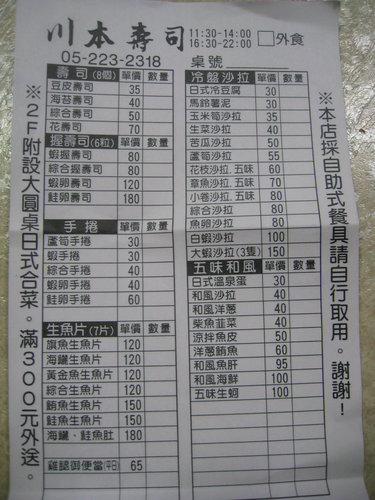 川本壽司
11:30-14:00
16:30-22:00
外食
05-223-2318
桌號
※2F附設大圓桌日式合菜。滿300元外送。
壽司(8個) 單價 數量
豆皮壽司 35
海苔壽司 40
綜合壽司 50
花壽司 70
握壽司(6粒) 單價 數量
蝦握壽司 80
綜合握壽司 80
蝦卵壽司 120
鮭卵壽司 180
手捲 單價 數量
蘆筍手捲 30
蝦手捲 30
綜合手捲 40
蝦卵手捲 40
鮭卵手捲 60
生魚片(7片) 單價 數量
旗魚生魚片 120
海鱺生魚片 120
黃金魚生魚片 120
綜合生魚片 120
鮪魚生魚片 150
鮭魚生魚片 150
海鱺、鮭魚肚 180
雞認御便當(平日) 65
冷盤沙拉 單價 數量
日式冷豆腐 30
馬鈴薯泥 30
玉米筍沙拉 35
生菜沙拉 40
苦瓜沙拉 50
蘆筍沙拉 55
花枝沙拉.五味 60
章魚沙拉.五味 70
小卷沙拉.五味 80
綜合沙拉 80
魚卵沙拉 80
白蝦沙拉 100
大蝦沙拉(3隻) 150
五味和風 單價 數量
日式溫泉蛋 30
和風沙拉 40
和風洋蔥 40
柴魚韮菜 40
涼拌魚皮 50
洋蔥鮪魚 60
和風魚肝 95
和風海鮮 100
五味生蚵 100
※本店採自助式餐具請自行取用。謝謝!